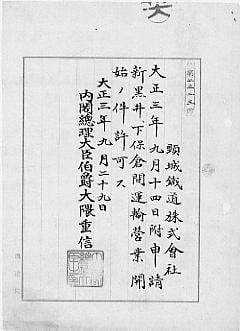 頸城鐵道株式會社
大正三年九月十四日附申請
新黒井、下保倉間運輸營業開
始ノ件許可ス
大正三年九月二十九日
内閣總理大臣伯爵大隈重信